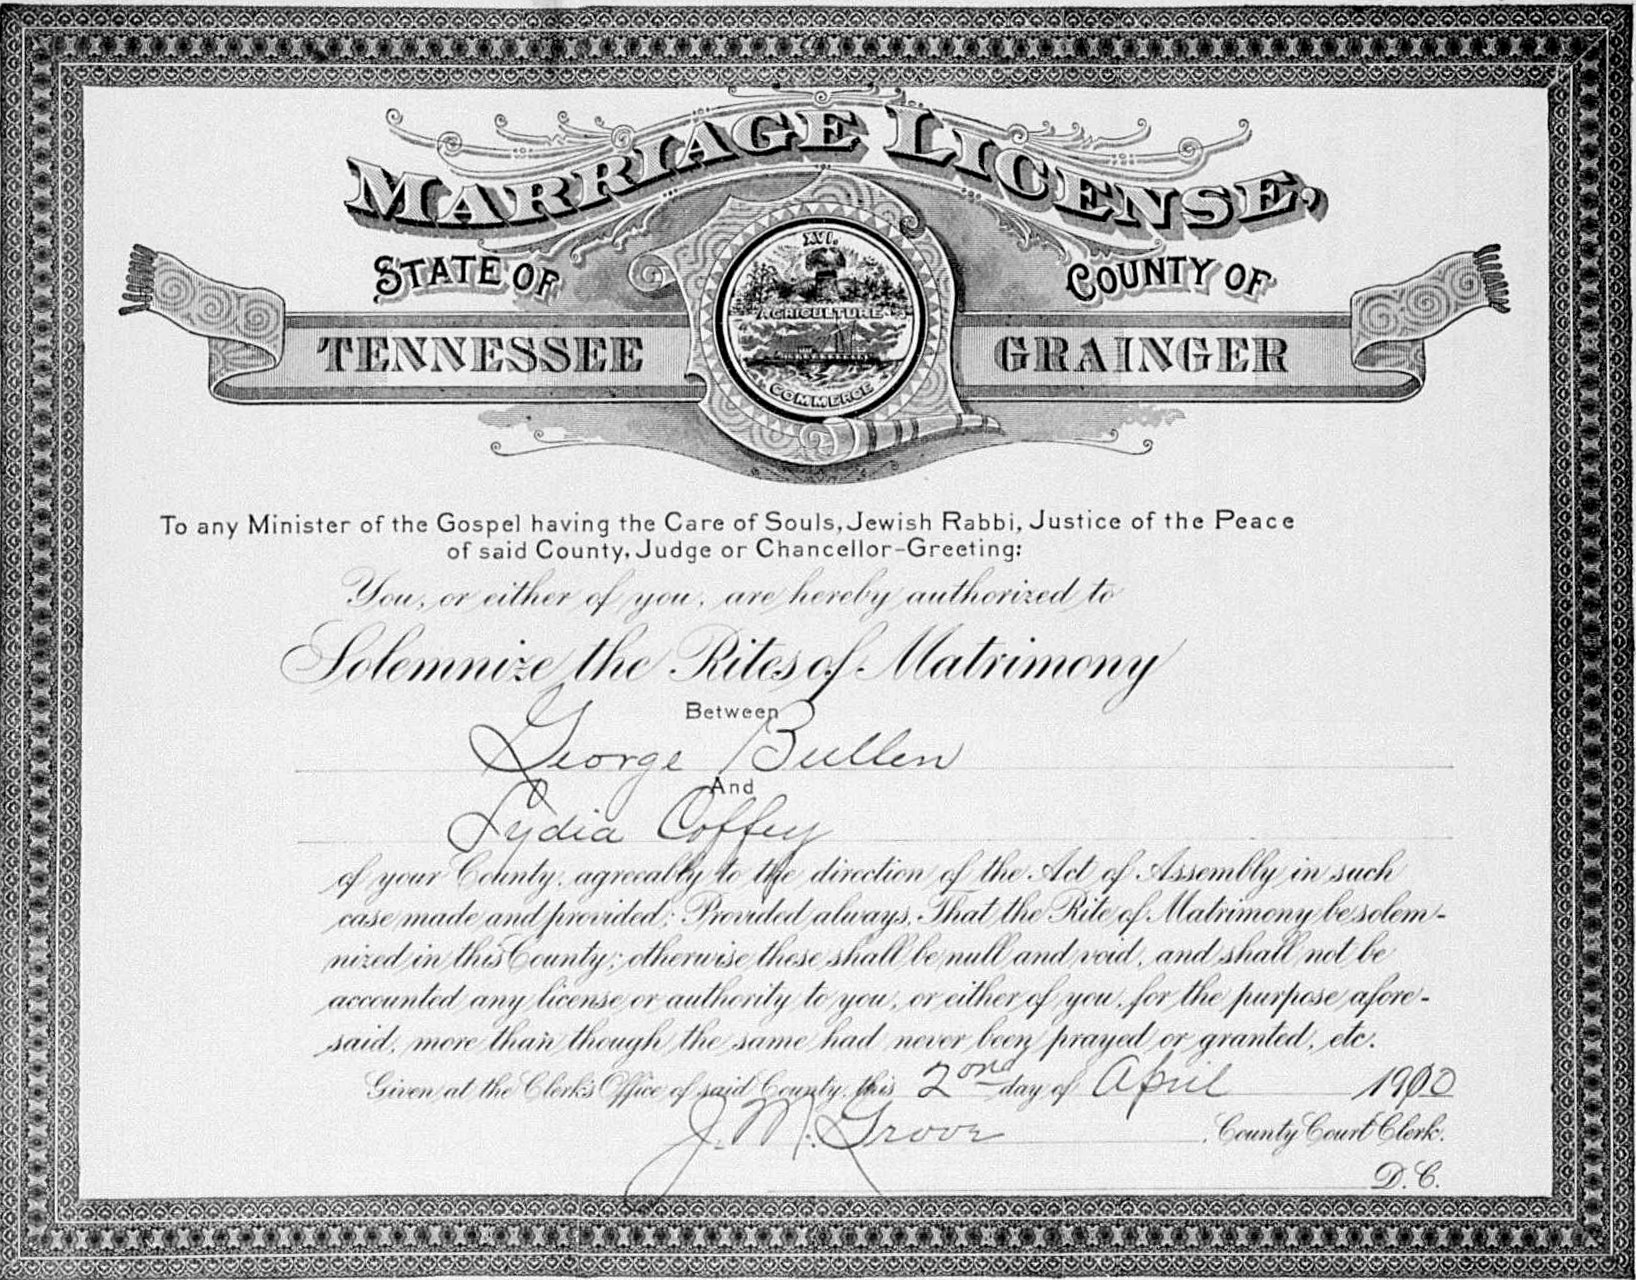 MARRIAGE LICENSE,
STATE OF
COUNTY OF
TENNESSEE
GRAINGER
XVI.
AGRICULTURE
COMMERCE
To any Minister of the Gospel having the Care of Souls, Jewish Rabbi, Justice of the Peace
of said County, Judge or Chancellor-Greeting:
You, or either of you, are hereby authorized to
Solemnize the Rites of Matrimony
Between
George Bullen
And
Lydia Coffey
of your County, agreeably to the direction of the Act of Assembly in such
case made and provided; Provided always, That the Rite of Matrimony be solem-
nized in this County; otherwise these shall be null and void, and shall not be
accounted any license or authority to you, or either of you, for the purpose afore-
said, more than though the same had never been prayed or granted, etc.
Given at the Clerk's Office of said County, this 2ond day of April 1900
J. M. Grove, County Court Clerk.
D. C.